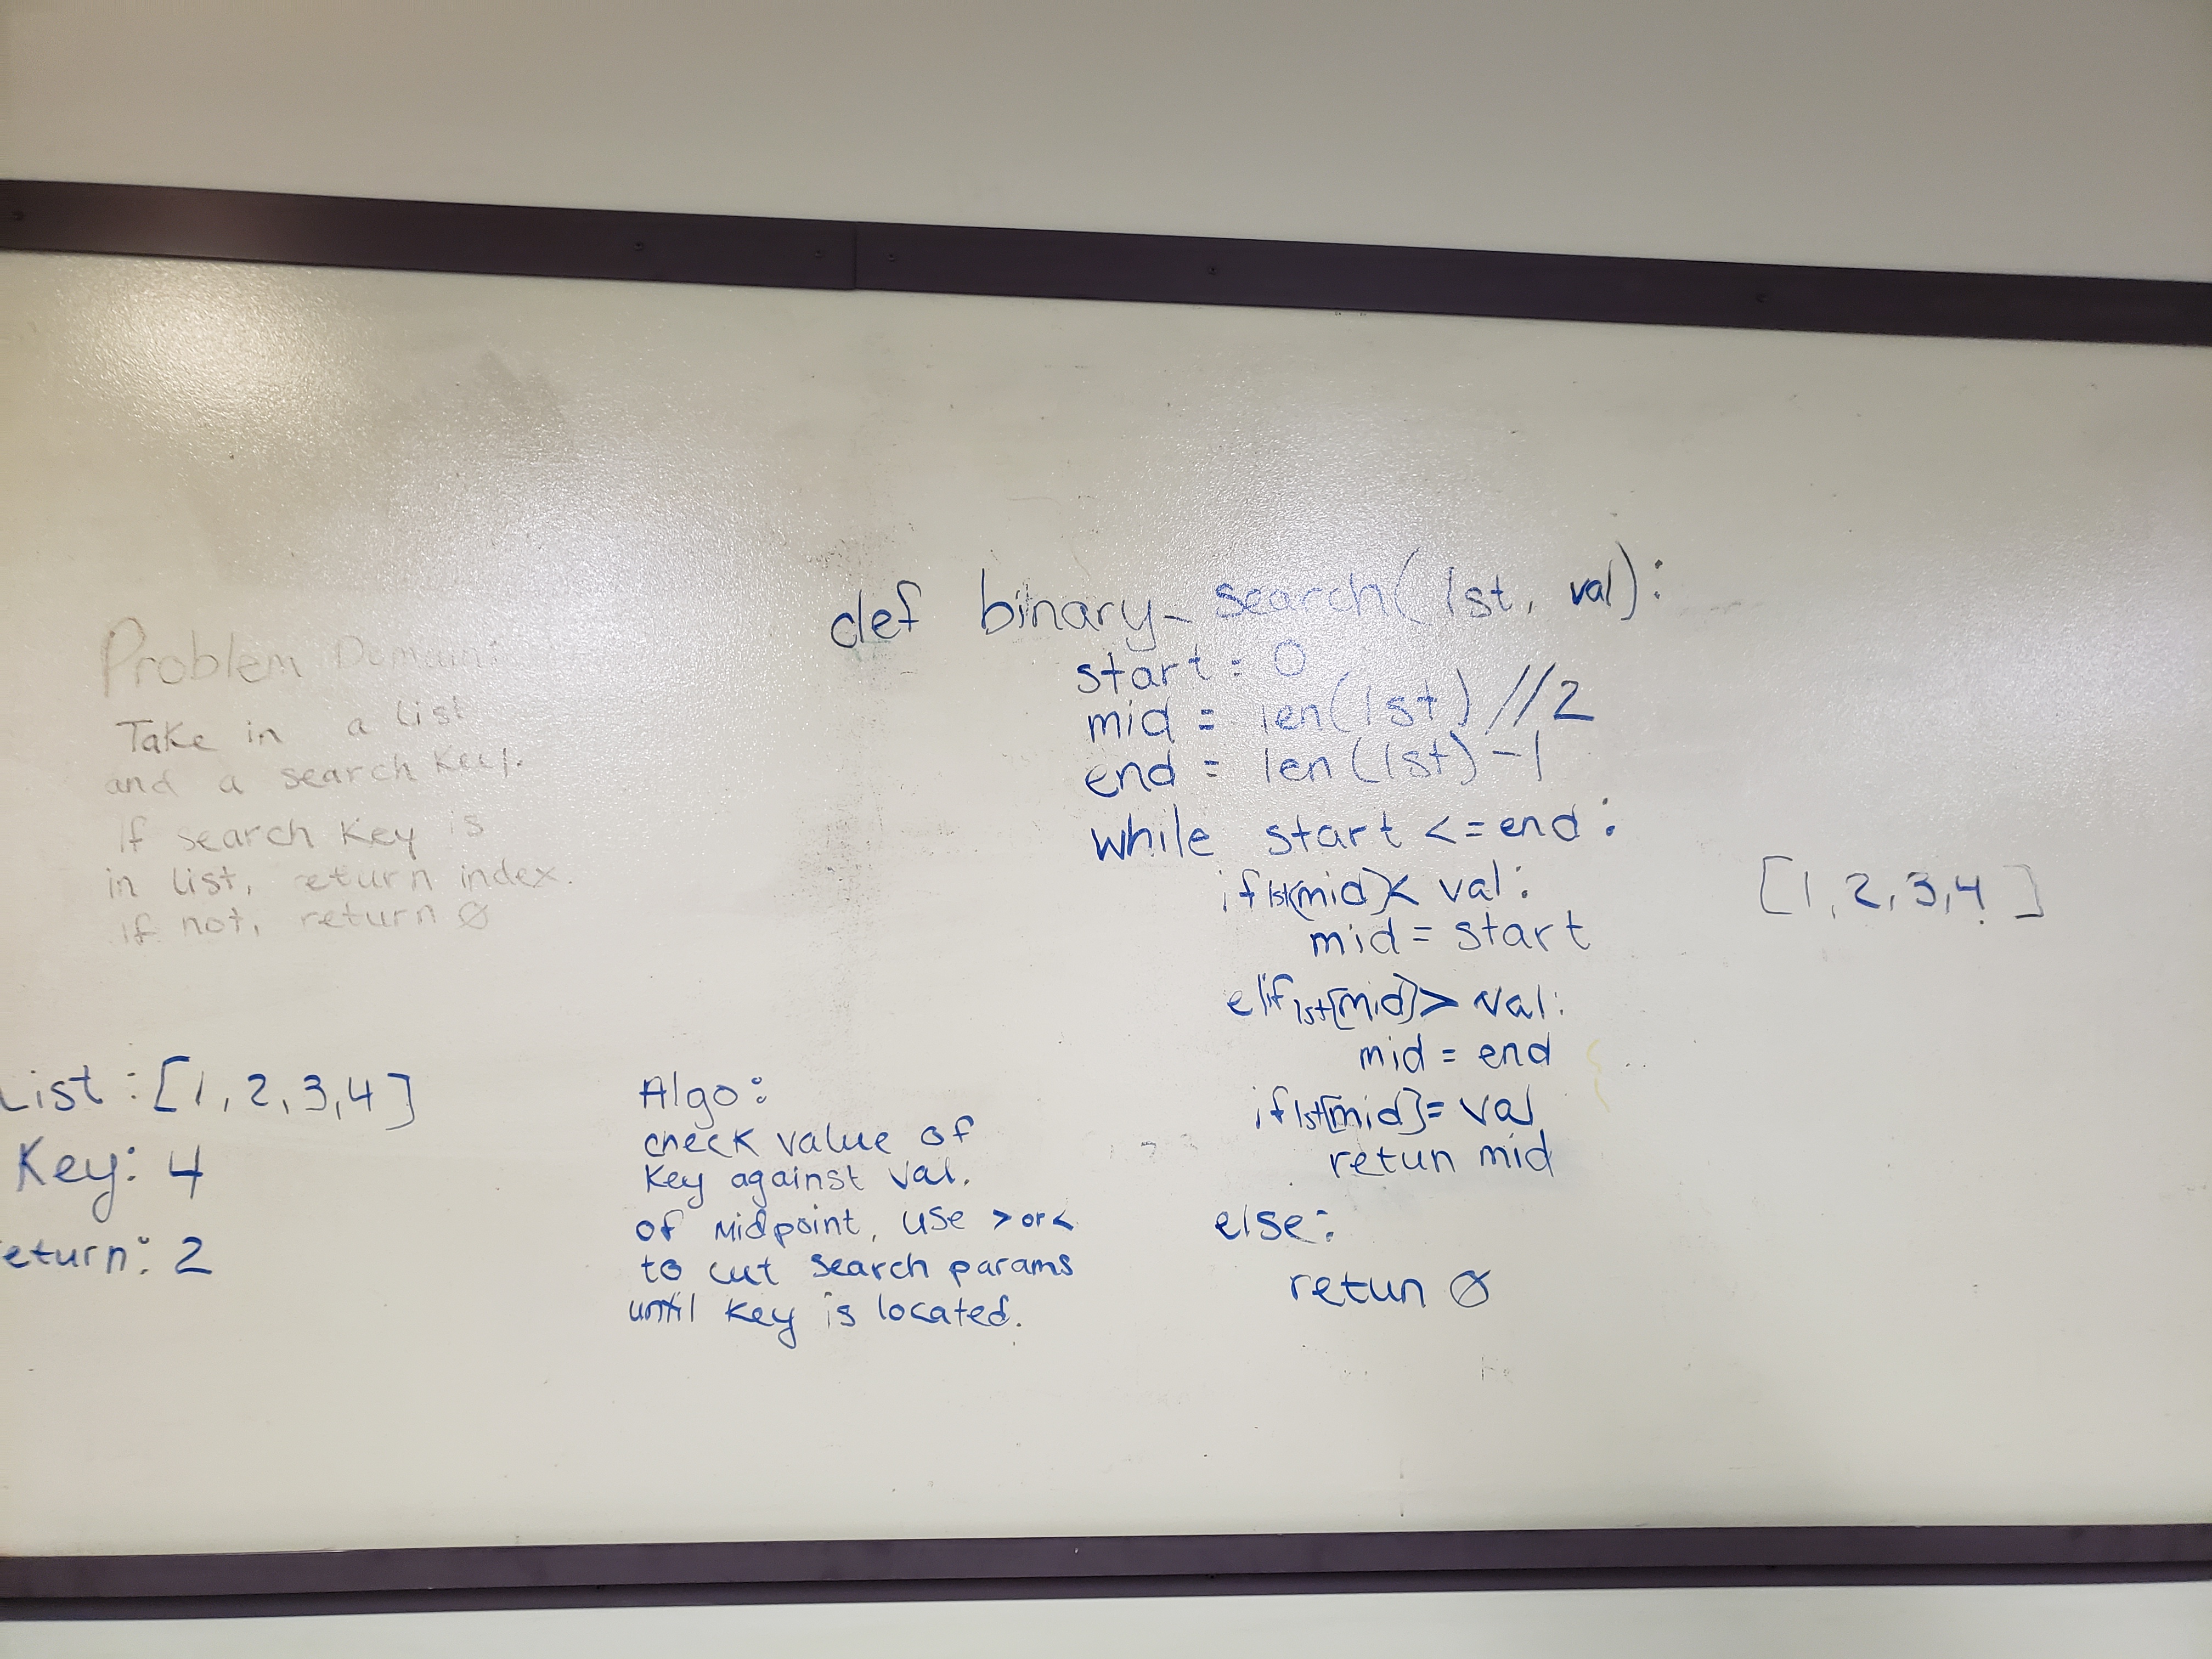 Problem Domain:
Take in a list
and a search key.
if search key is
in list, return index.
if not, return Ø
List : [1, 2, 3, 4]
Key: 4
eturn: 2
Algo:
check value of
key against val.
of midpoint, use > or <
to cut search params
until key is located.
def binary_search(lst, val):
start = 0
mid = len(lst) //2
end = len(lst) -1
while start <= end:
if lst[mid] < val:
mid = start
elif lst[mid] > val:
mid = end
if lst[mid] = val
retun mid
else:
retun Ø
[1, 2, 3, 4]